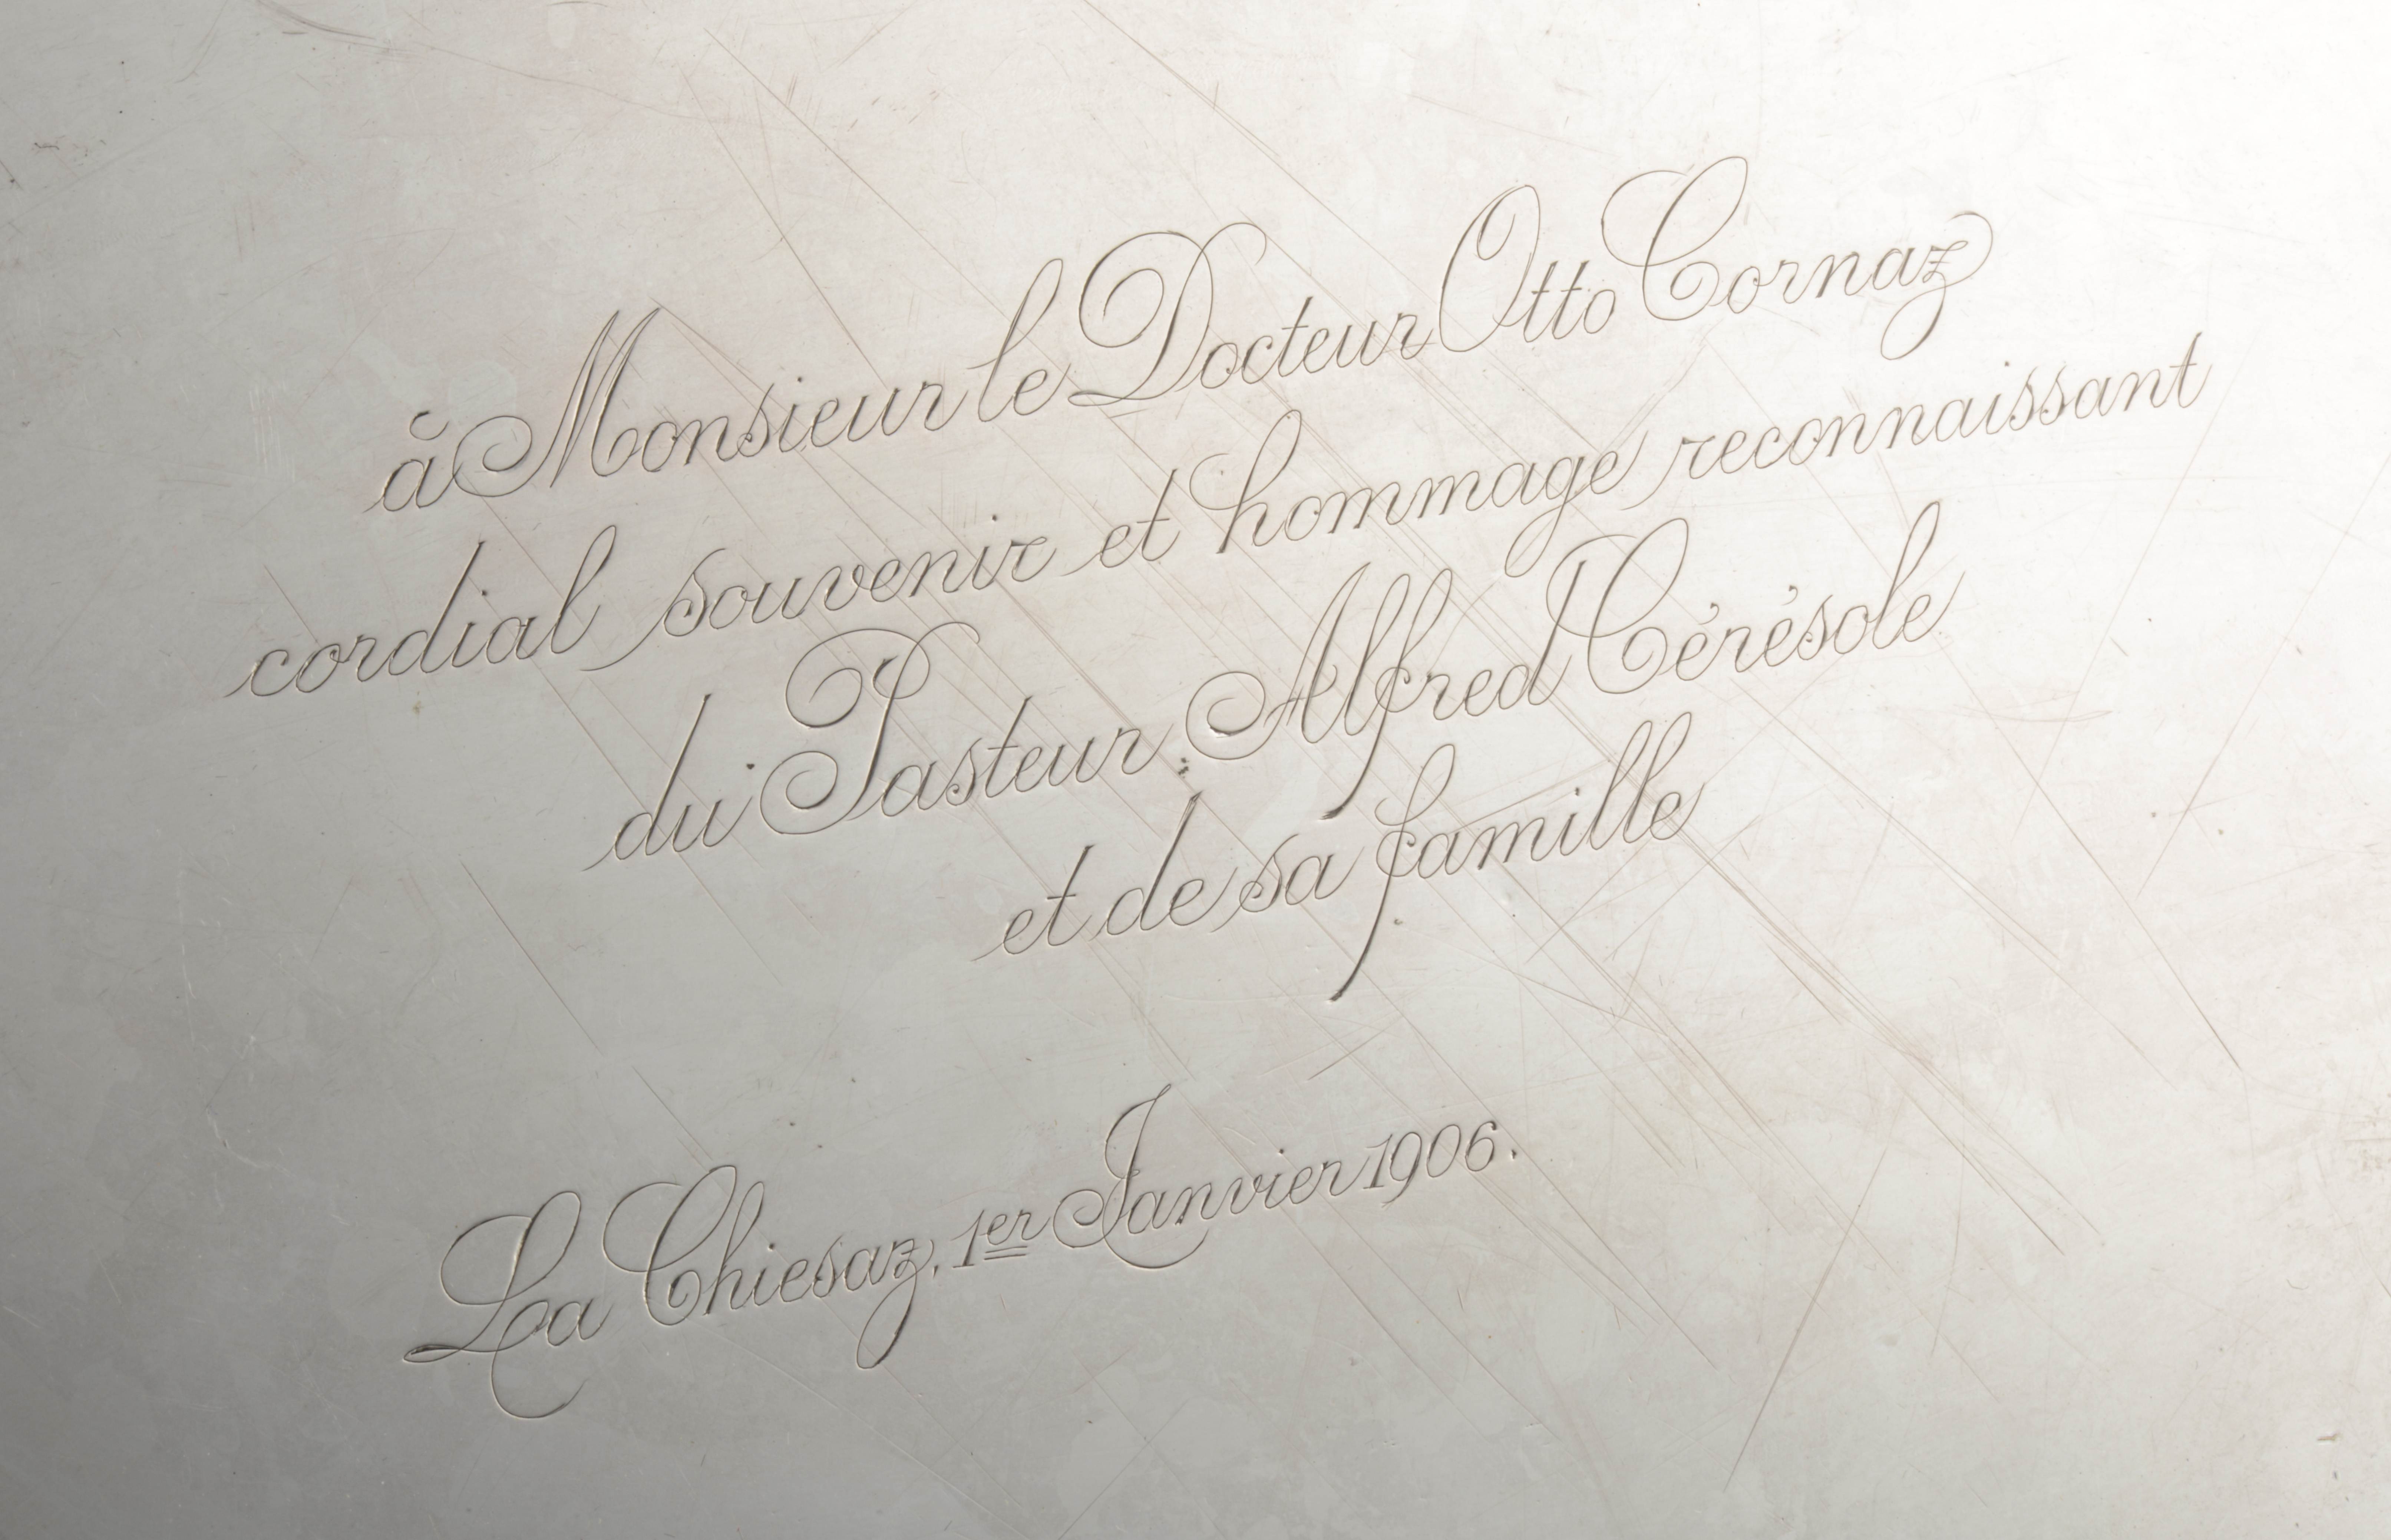 à Monsieur le Docteur Otto Cornaz
cordial souvenir et hommage reconnaissant
du Pasteur Alfred Cérésole
et de sa famille
La Chiesaz, 1er Janvier 1906.